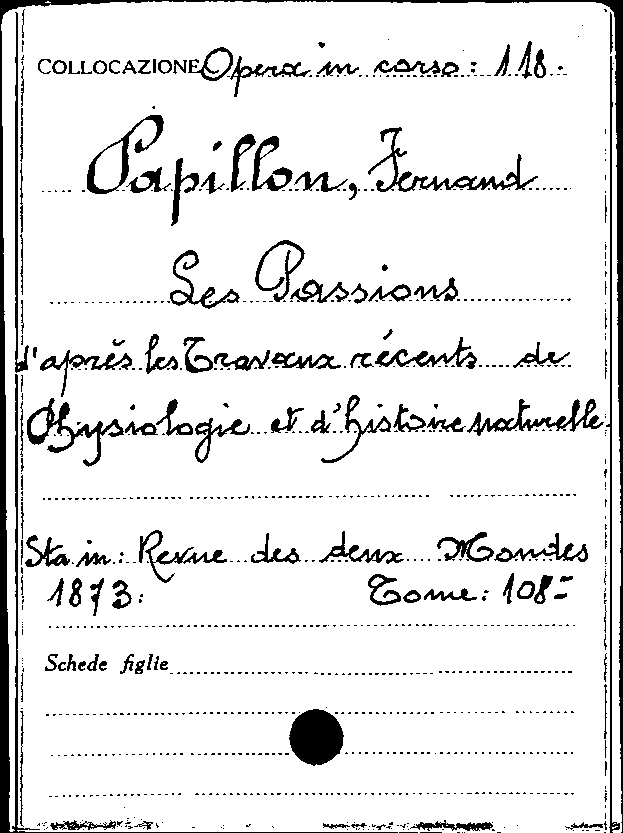 COLLOCAZIONE Opera in corso: 118.
Papillon, Fernand
Les Passions
d'après les Travaux récents de
Physiologie et d'histoire naturelle.
Sta in: Revue des deux Mondes
1873. Tome: 108=
Schede figlie